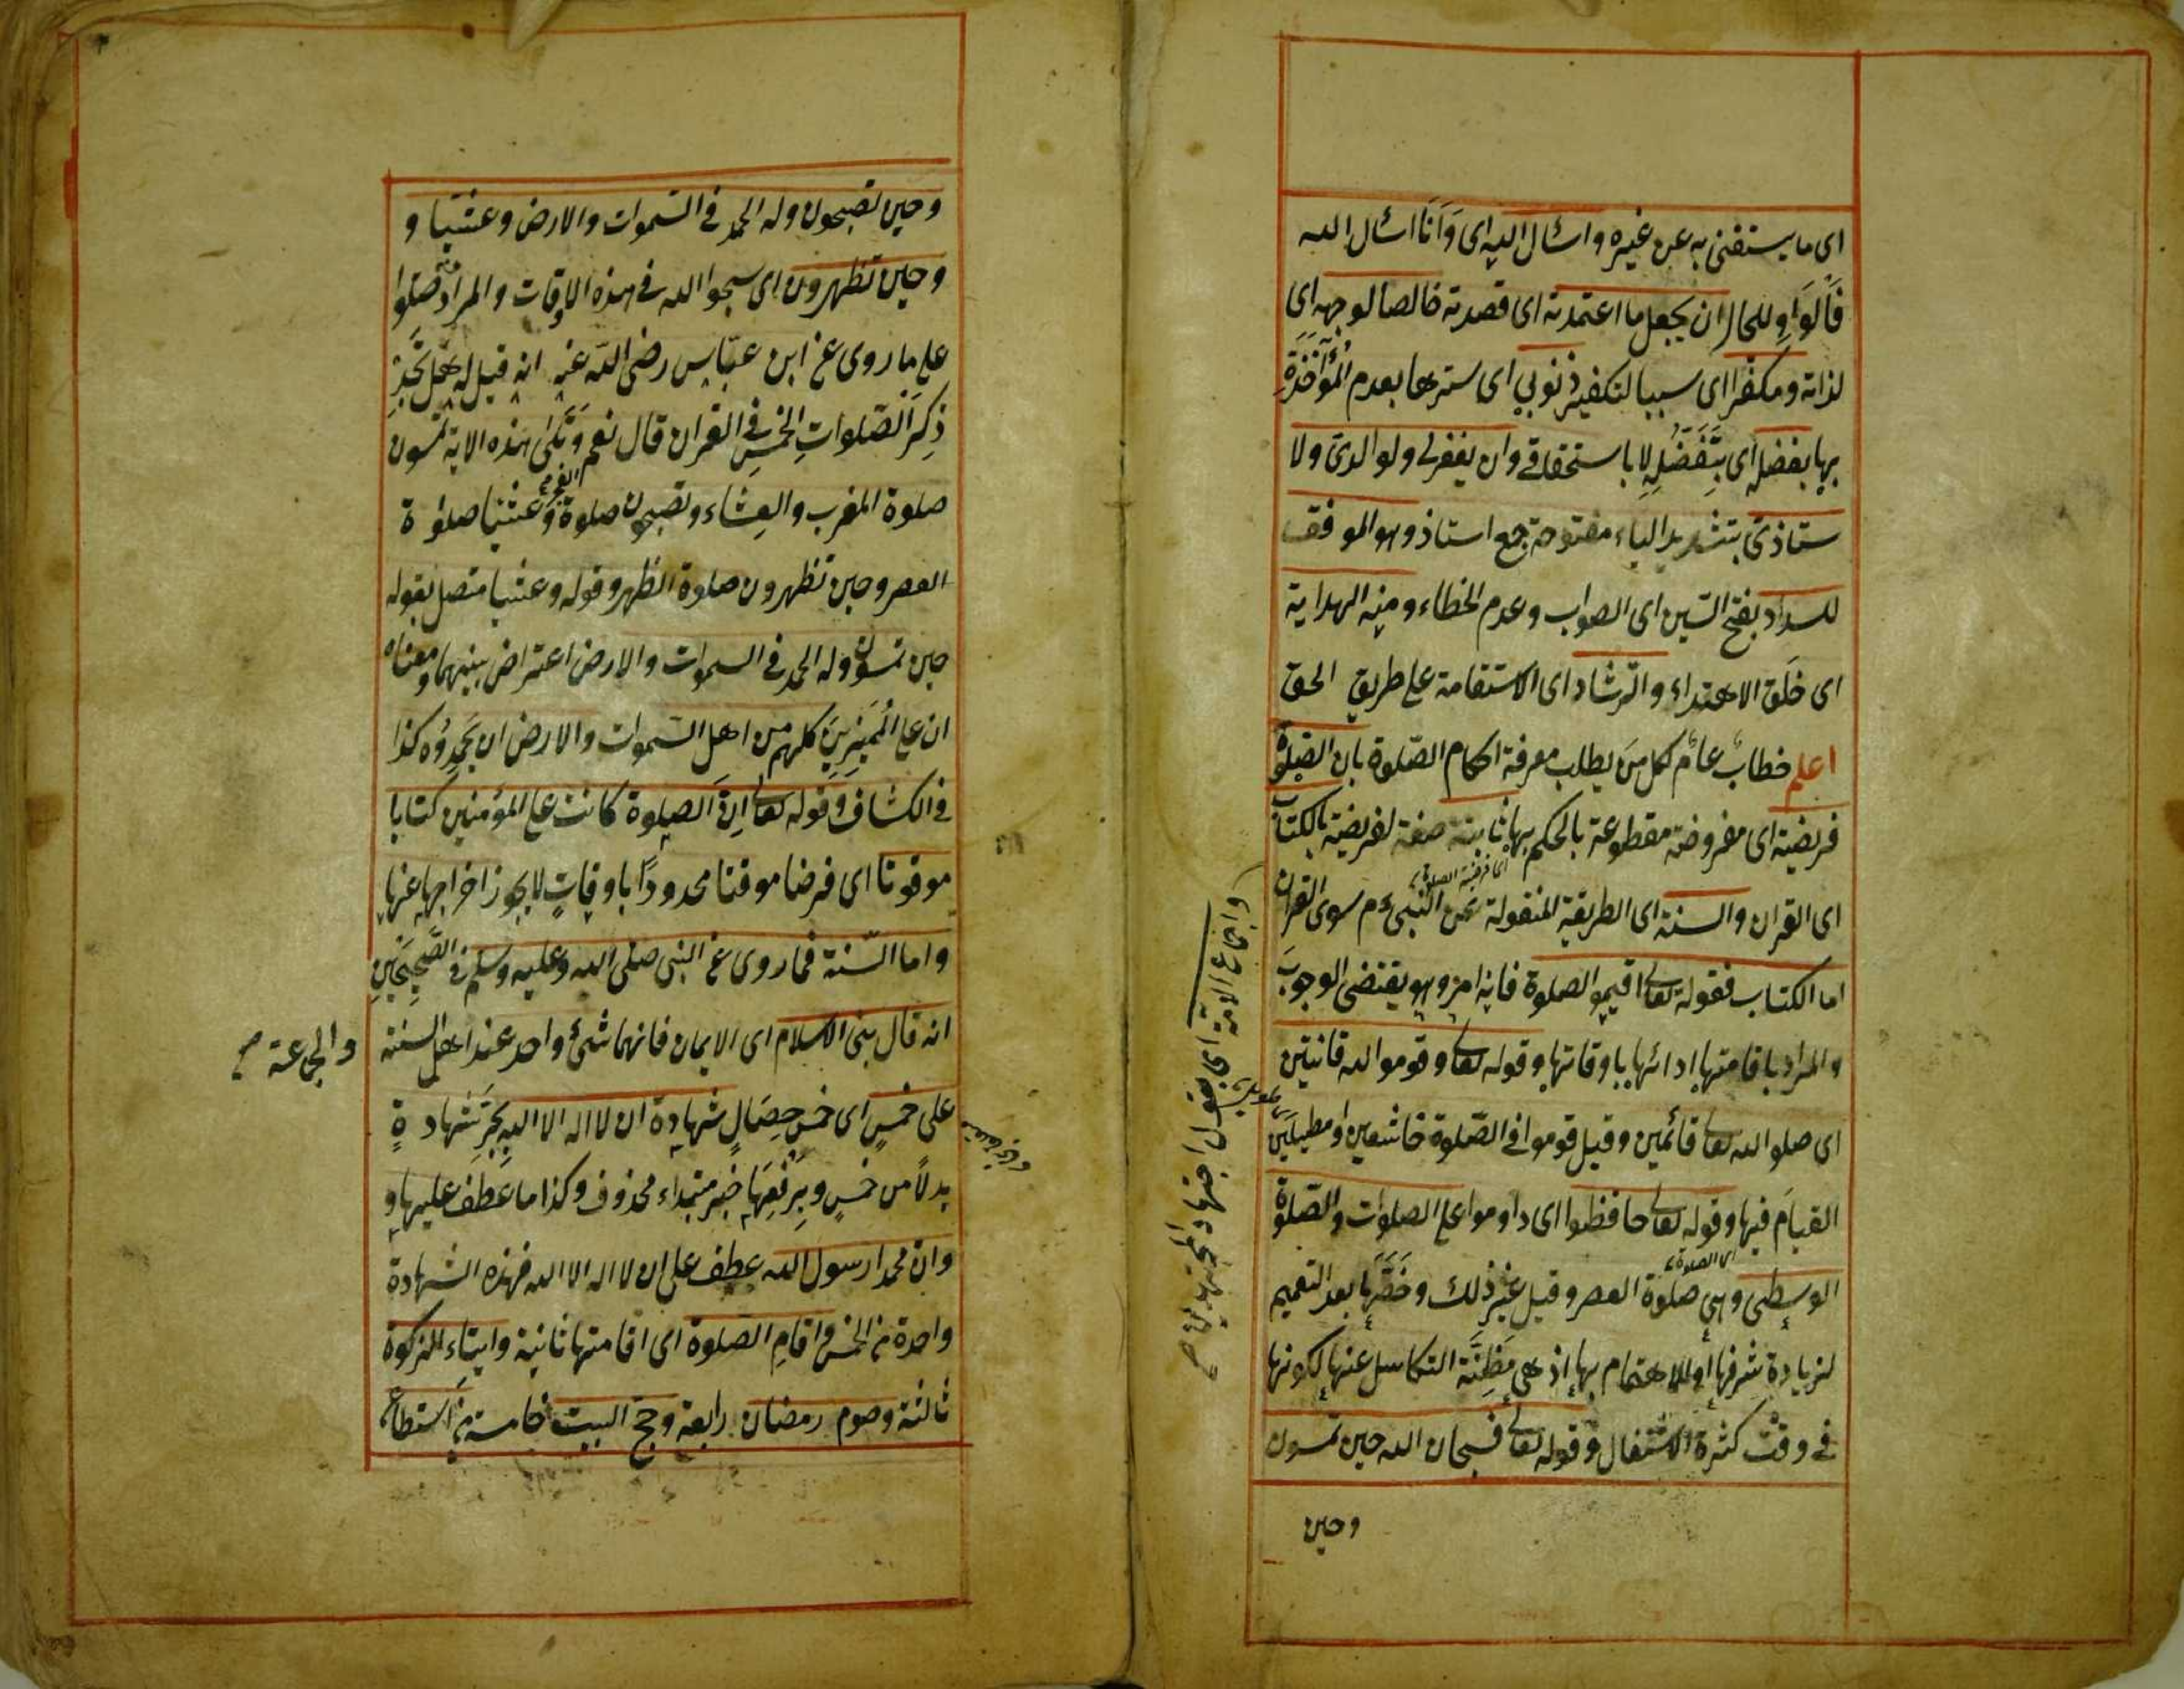 اى ما يستغنى به عن غيره واسئال اليه اى وَاَنَا اسئال الله
فَالوَاو للحال ان يجعل ما اعتمدته اى قصدته خالصا لوجهه اى
لذاته ومكفّرا اى سببا لتكفير ذنوبى اى سترها بعدم المُؤاخَذَةِ
بها بفضله اى بِتَفَضُّلِهِ لا باستحقاقى وان يغفرلى ولوالدىّ ولا
ستاذىّ بتشديد الياء مفتوحة جمع استاذ وهو الموفق
للسداد بفتح السّين اى الصواب وعدم الخطاء ومنه الهداية
اى خَلَق الاهتداء والرّشاد اى الاستقامة على طريق الحق
اعلم خطابٌ عامّ لكل مَن يطلب معرفة احكام الصّلوة بان الصّلوة
فريضة اى مفروضة مقطوعة بالحكم بها ثابتة صفة لفريضة بالكتاب
اى القران والسنة اى الطريقة المنقولة عن النّبىء م سوى القران
اى فرضية الصلوة
اما الكتاب فقوله تعالى اقيموا الصلوة فانه امر وهو يقتضى الوجوبَ
والمراد باقامتها ادائها باوقاتها وقوله تعالى وقوموا لله قانتين
اى صلوا لله تعالى قائمين وقيل قوموا فى الصّلوة خاشعين او مطيلين
القيامَ فيها وقوله تعالى حافظوا اى داوموا على الصلوات والصّلوة
الوسطى وهى صلوة العصر وقيل غير ذلك وخَصَّهَا بعد التعميم
اى الصلوة
لزيادة شرفها او للاهتمام بها اذ هى مَظِنَّة التكاسل عنها لكونها
فى وقت كثرة الاشتغال وقوله تعالى فسبحان الله حين تمسون
وحين
واجماع الامة اى
وحين تصبحون وله الحمد فى السّموات والارض وعشيّا و
وحين تظهرون اى سبحوا الله فى هذه الاوقات والمراد منه صلّوا
على ما روى عن ابن عبّاس رضى اللّه عنه انه قيل له هل تَجِدُ
ذِكرَ الصّلواتِ الخمسِ فى القران قال نعم وَتَلَى هذه الاية تمسون
صلوة المغرب والعِشاء وتصبحون صلوة الفجر وعشيّا صلوة
العصر وحين تظهرون صلوة الظهر وقوله وعشيا متصل بقوله
حين تمسون وله الحمد فى السموات والارض اعتراض بينهما ومعناه
ان على المُمَيِّزِينَ كلهم من اهل السّموات والارض ان يَحمِدُوه كذا
فى الكشاف وقوله تعالى اِنّ الصلوة كانت على المؤمنين كتابا
موقوتا اى فرضا موقتا محدودًا باوقاتٍ لا يجوز اخراجها عنها
واما السّنة فما روى عن النبى صلى الله وعليه وسلم فى الصَّحِيحَينِ
انه قال بنى الاسلام اى الايمان فانهما شئ واحد عند اهل السنة
والجماعة صح
على خمسٍ اى خمس خِصَالٍ شهادة ان لا اله الا الله بِجَرِّ شهادةٍ
بدلًا من خمسٍ وبِرَفعِهَا خبر مبتداء محذوف وكذا ما عَطَفَ عليها و
وان محمدا رسول الله عطف على ان لا اله الا الله فهذه الشهادة
واحدة من الخمس واقامِ الصلوة اى اقامتها ثانية وايتاء الزكوة
ثالثة وصوم رمضان رابعة وحج البيت خامسة من استطاع